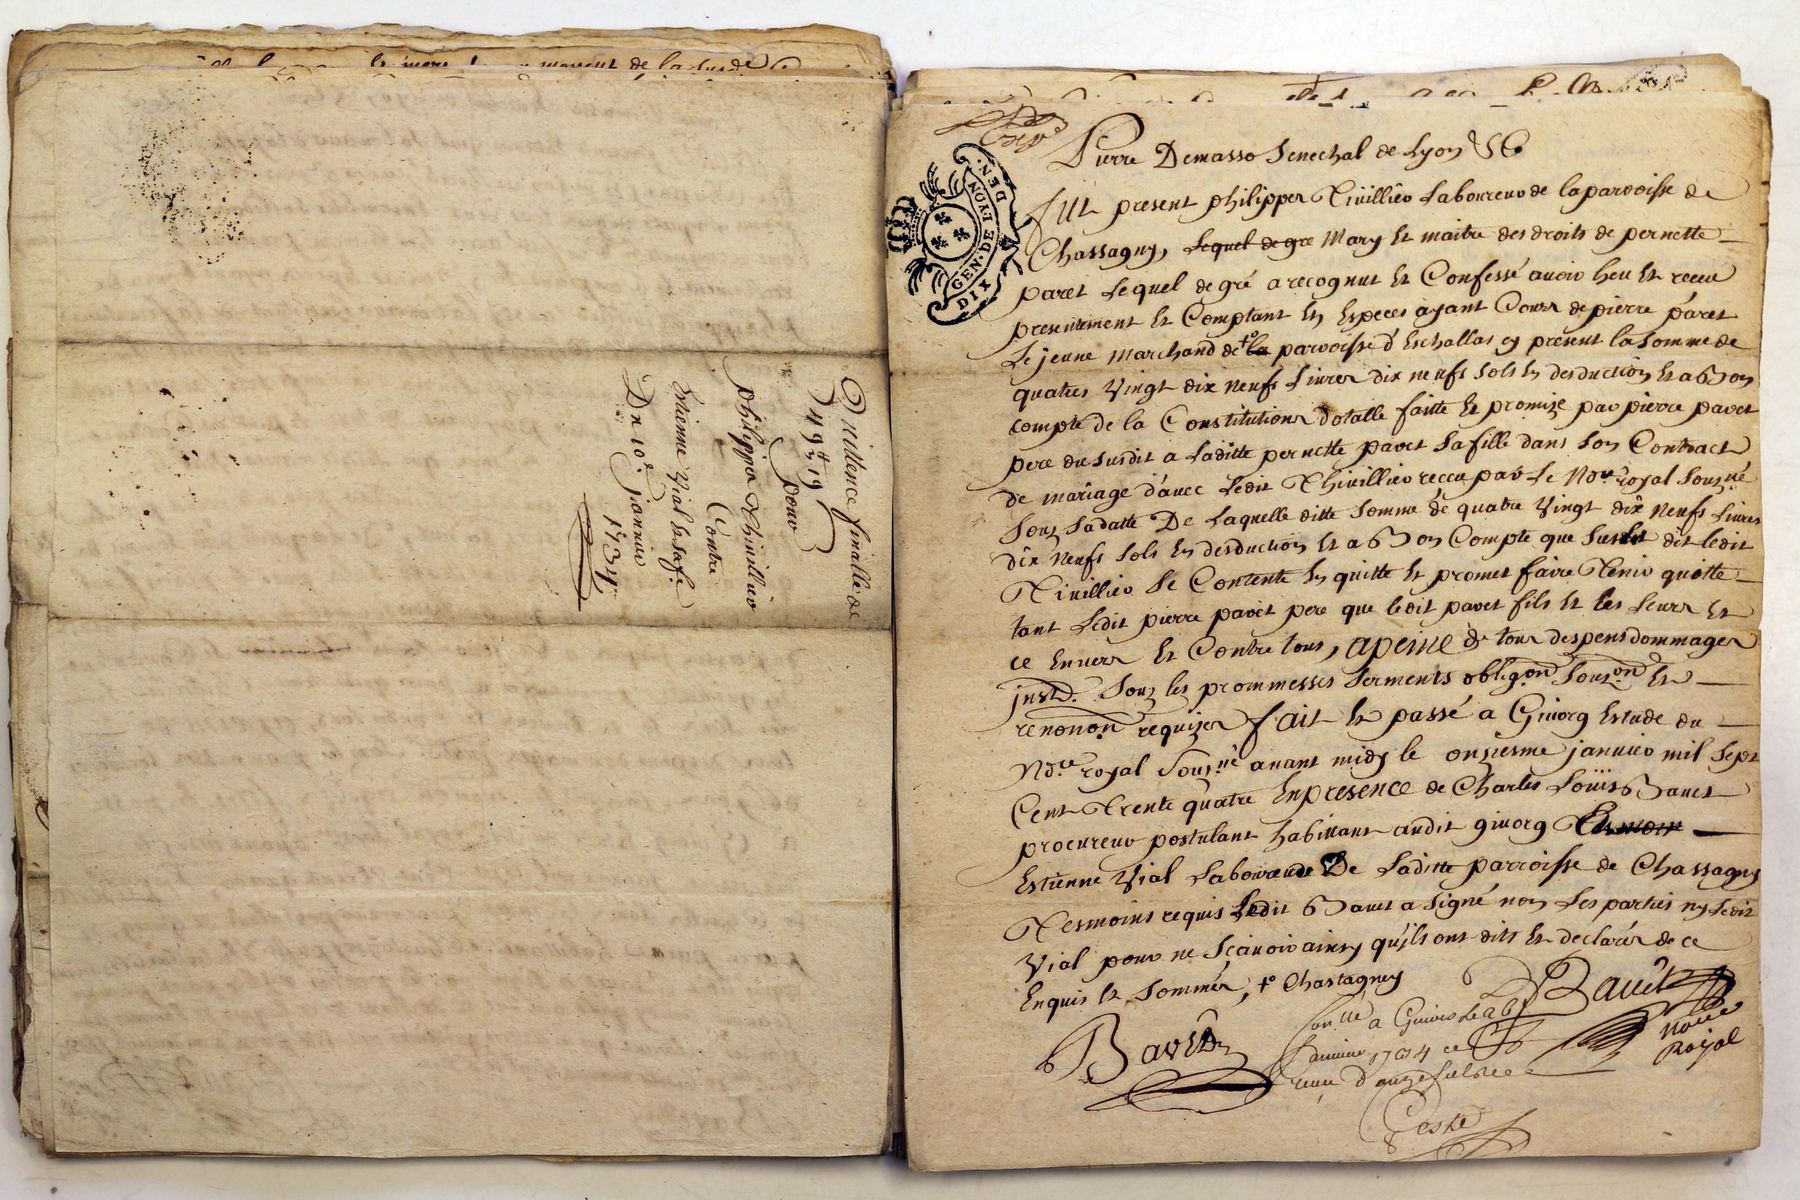 Quittence finalle de
49ᵗᵗ 19ˢ pour
philipper Thivillieu
Contre
Estienne Vial le safe
Du 10e janvier
1734
Expᵉ
DIX DEN.
GEN. DE LYON
Pierre Demasso Senechal de Lyon &c
fut present philipper Tivillieu Laboureur de la parroisse de
Chassagny, Lequel de gre Mary et maitre des droits de pernette
paret Lequel de gré a recognut et Confessé avoir heu et receu
presentement et Comptant en Especes ayant Cours de pierre paret
Le jeune marchand de +° la parroisse d'Eschallas cy present la somme de
quatres vingt dix neufs Livres dix neufs sols en desduction et a bon
compte de la Constitutions dotalle faitte et promize par pierre paret
pere du susdit a Laditte pernette paret sa fille dans son Contract
de mariage d'avec Ledit Thivillieu receu par Le Nore royal sousné
sous sa datte De Laquelle ditte somme de quatre vingt dix neufs livres
dix neufs sols en desduction et a bon Compte que sus est dit ledit
Tivillieu se Contente en quitte et promet faire Tenir quitte
tant Ledit pierre paret pere que ledit paret fils et les Leurs et
ce Envers et Contre tous, apeine de tous despens dommages
jnstz. Sous les prommesses serments obligon souzon et
renonon requizes fait et passé a Givorg Estude du
Nore royal Sousné avant midy le onziesme janvier mil sept
Cent Trente quatre En presence de Charles Loüis Bauet
procureur postulant habittant audit givorg Tesmoin
Estienne Vial Laboureur De Laditte parroisse de Chassagny
Tesmoins requis Ledit Bauet a signé non Les parties ny Ledit
Vial pour ne Sçavoir ainsy qu'jls ont dits et declarés de ce
Enquis et Sommés, +° Chassagny
Bauet
Bauet
Notre
Royal
Conllé a Givors Le
janvier 1734
receu d'onze sols
Coste